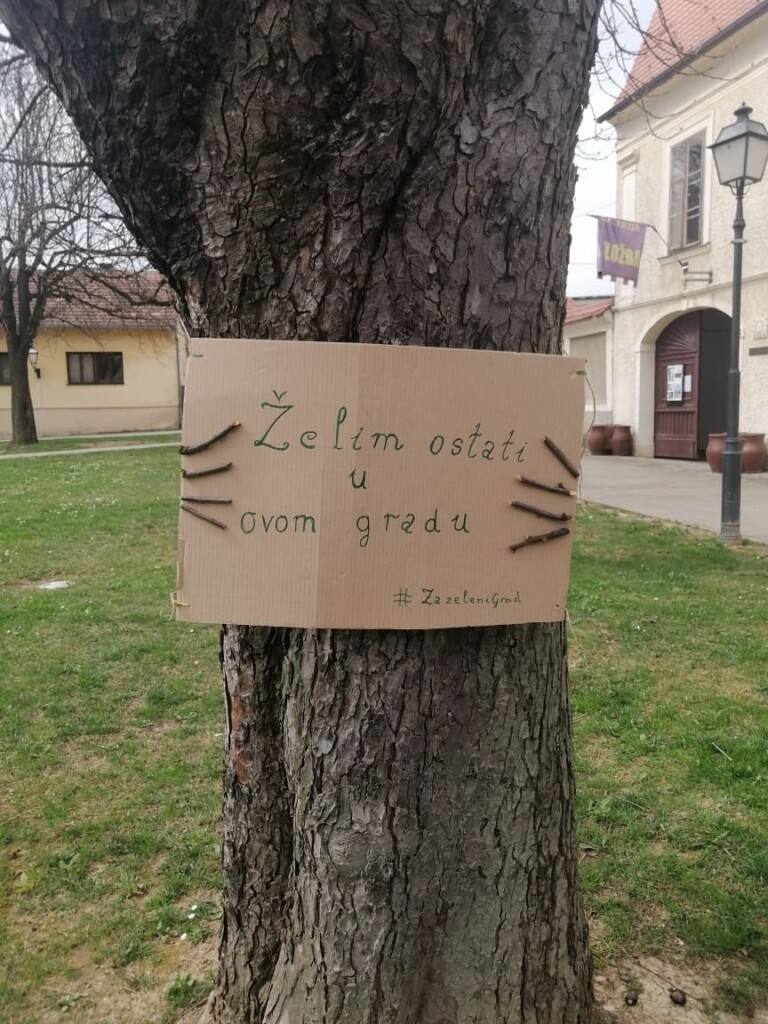 Želim ostati
u
ovom gradu
# Zazelenigrad